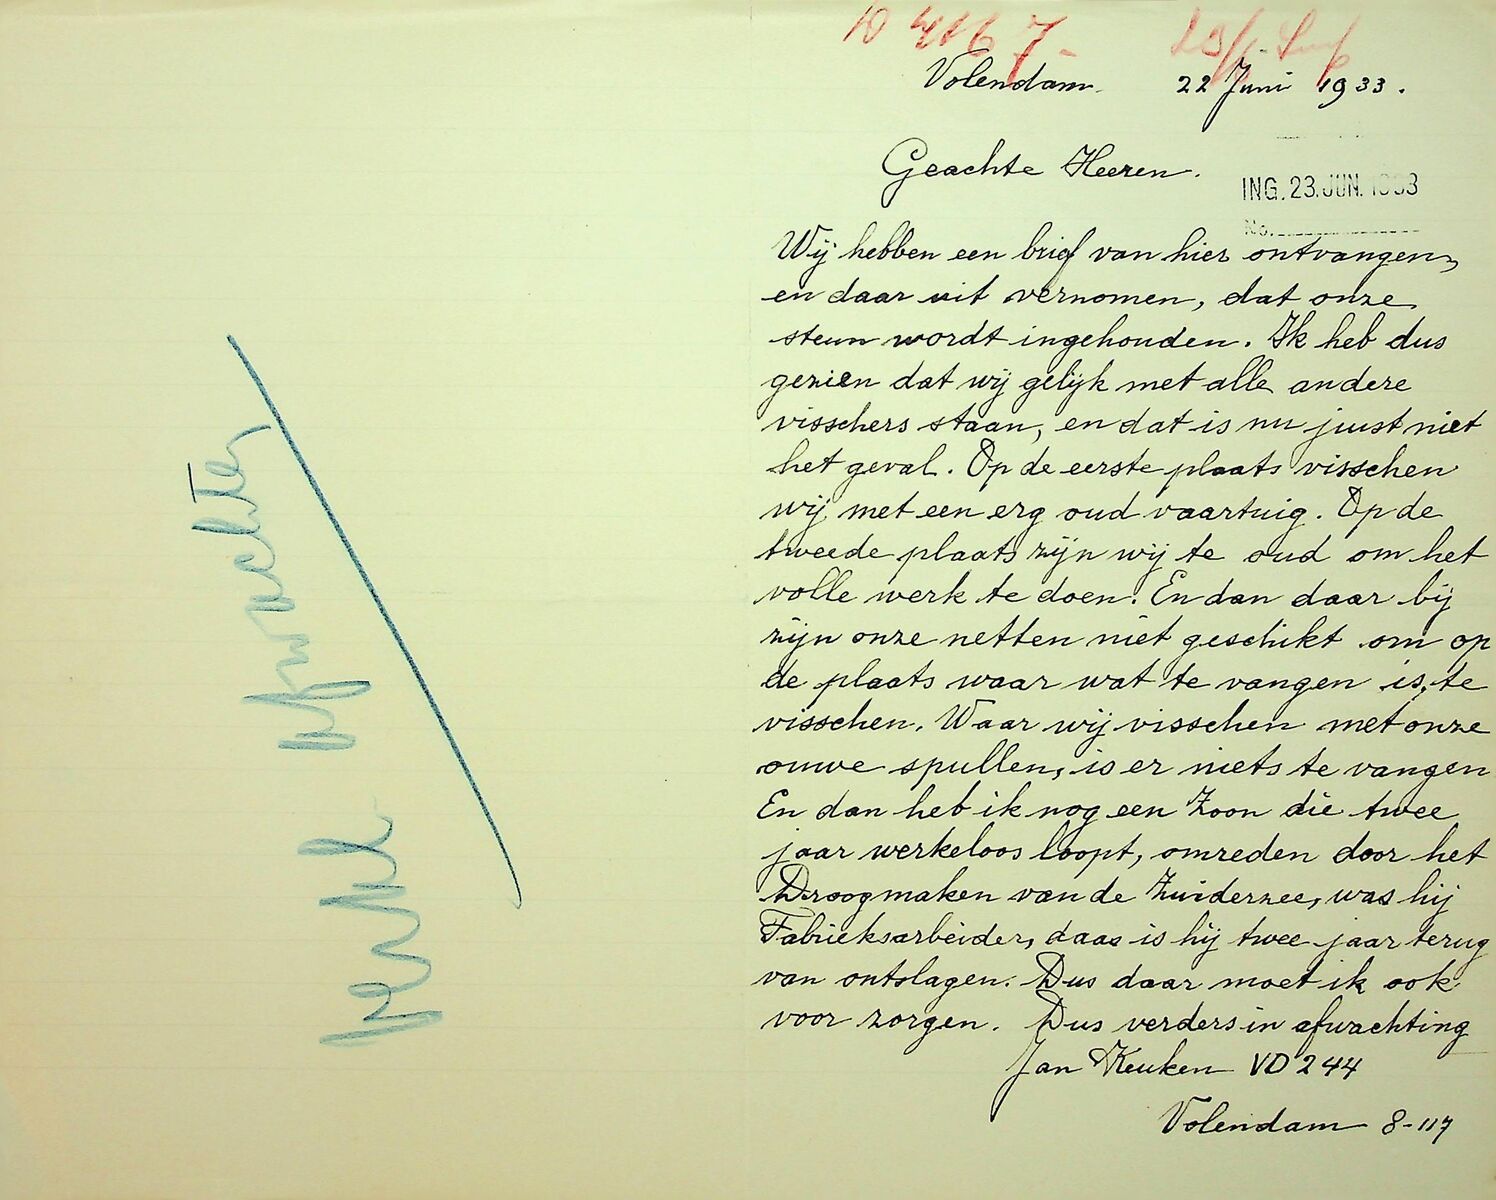 D 4167
Volendam. 22 Juni 1933.
Geachte Heeren.
ING. 23. JUN. 1933
No.
Wij hebben een brief van hier ontvangen,
en daar uit vernomen, dat onze
steun wordt ingehouden. Ik heb dus
gezien dat wij gelijk met alle andere
visschers staan, en dat is nu juist niet
het geval. Op de eerste plaats visschen
wij met een erg oud vaartuig. Op de
tweede plaats zijn wij te oud om het
volle werk te doen. En dan daar bij
zijn onze netten niet geschikt om op
de plaats waar wat te vangen is, te
visschen. Waar wij visschen met onze
ouwe spullen, is er niets te vangen
En dan heb ik nog een Zoon die twee
jaar werkeloos loopt, omreden door het
Droogmaken van de Zuiderzee, was hij
Fabrieksarbeider, daas is hij twee jaar terug
van ontslagen. Dus daar moet ik ook
voor zorgen. Dus verders in afwachting
Jan Keuken VD 244
Volendam 8-117